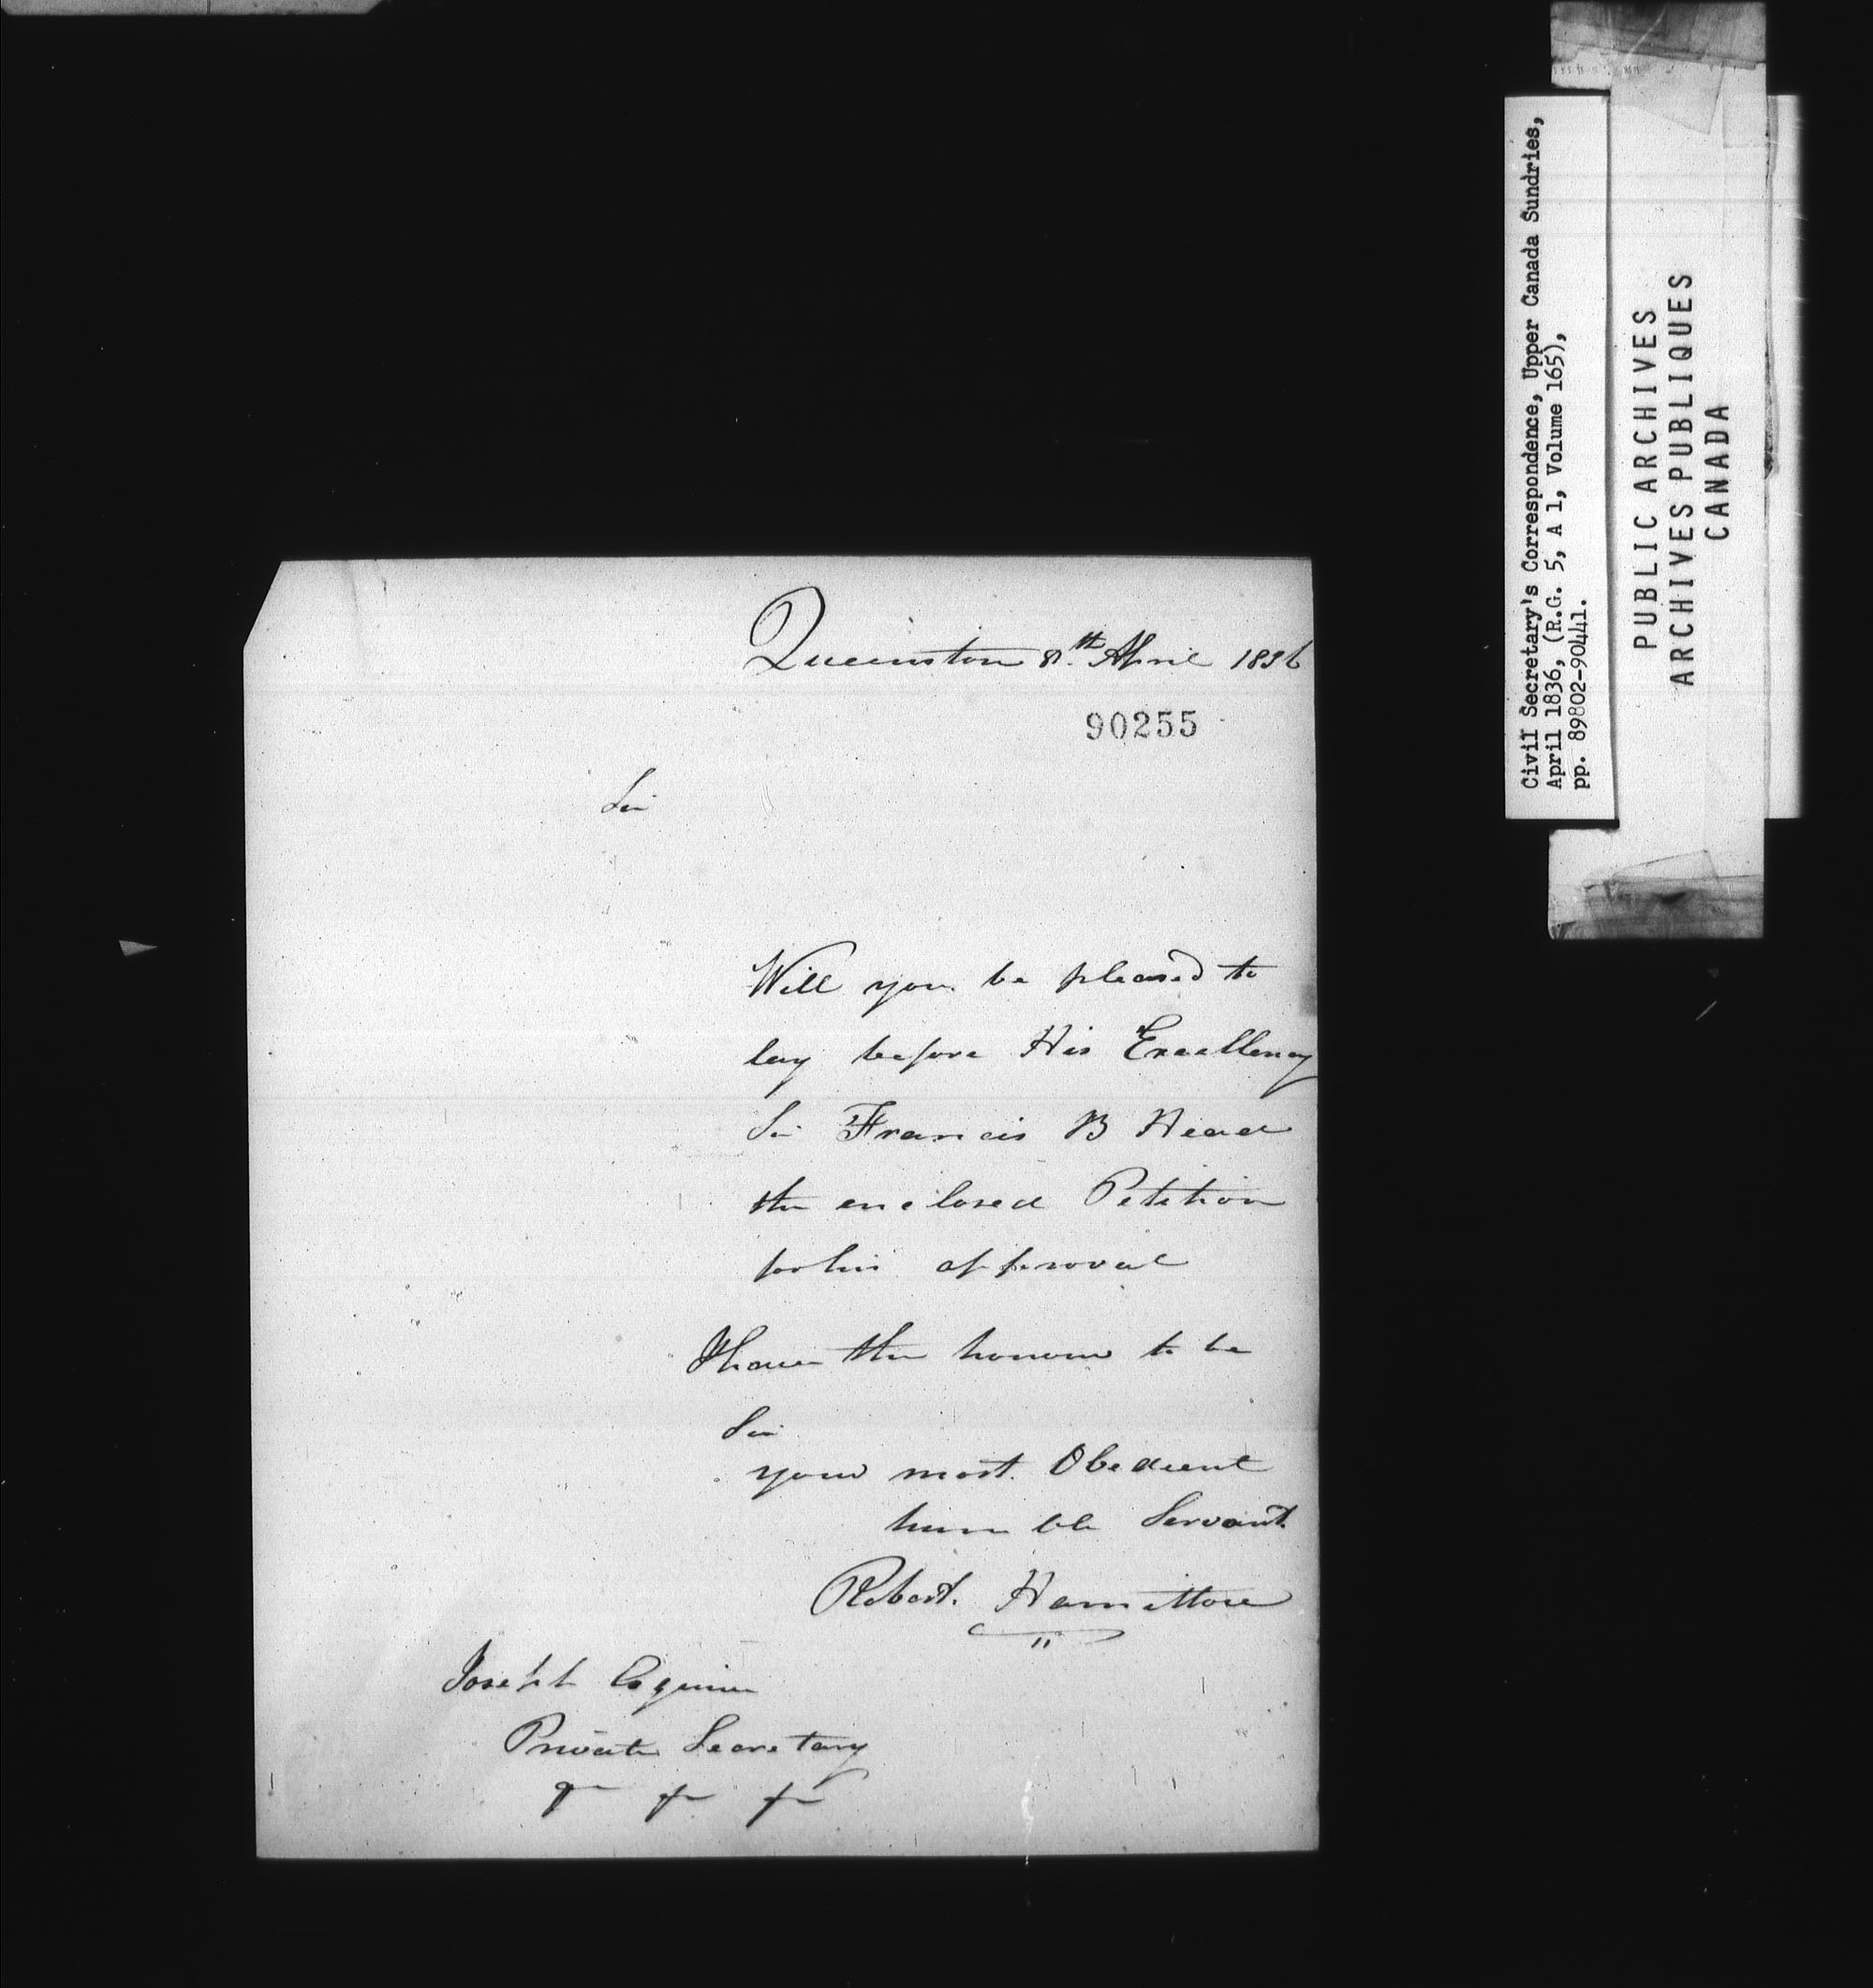 Queenston 8th. April 1836
90255
Sir
Will you be pleased to
lay before His Excellency
Sir Francis B Head
the enclosed Petition
for his approval
I have the honour to be
Sir
your most Obedient
humble Servant
Robert. Hamilton
Joseph Esquire
Private Secretary
Civil Secretary's Correspondence, Upper Canada Sundries,
April 1836, (R.G. 5, A 1, Volume 165),
pp. 89802-90441.
PUBLIC ARCHIVES
ARCHIVES PUBLIQUES
CANADA